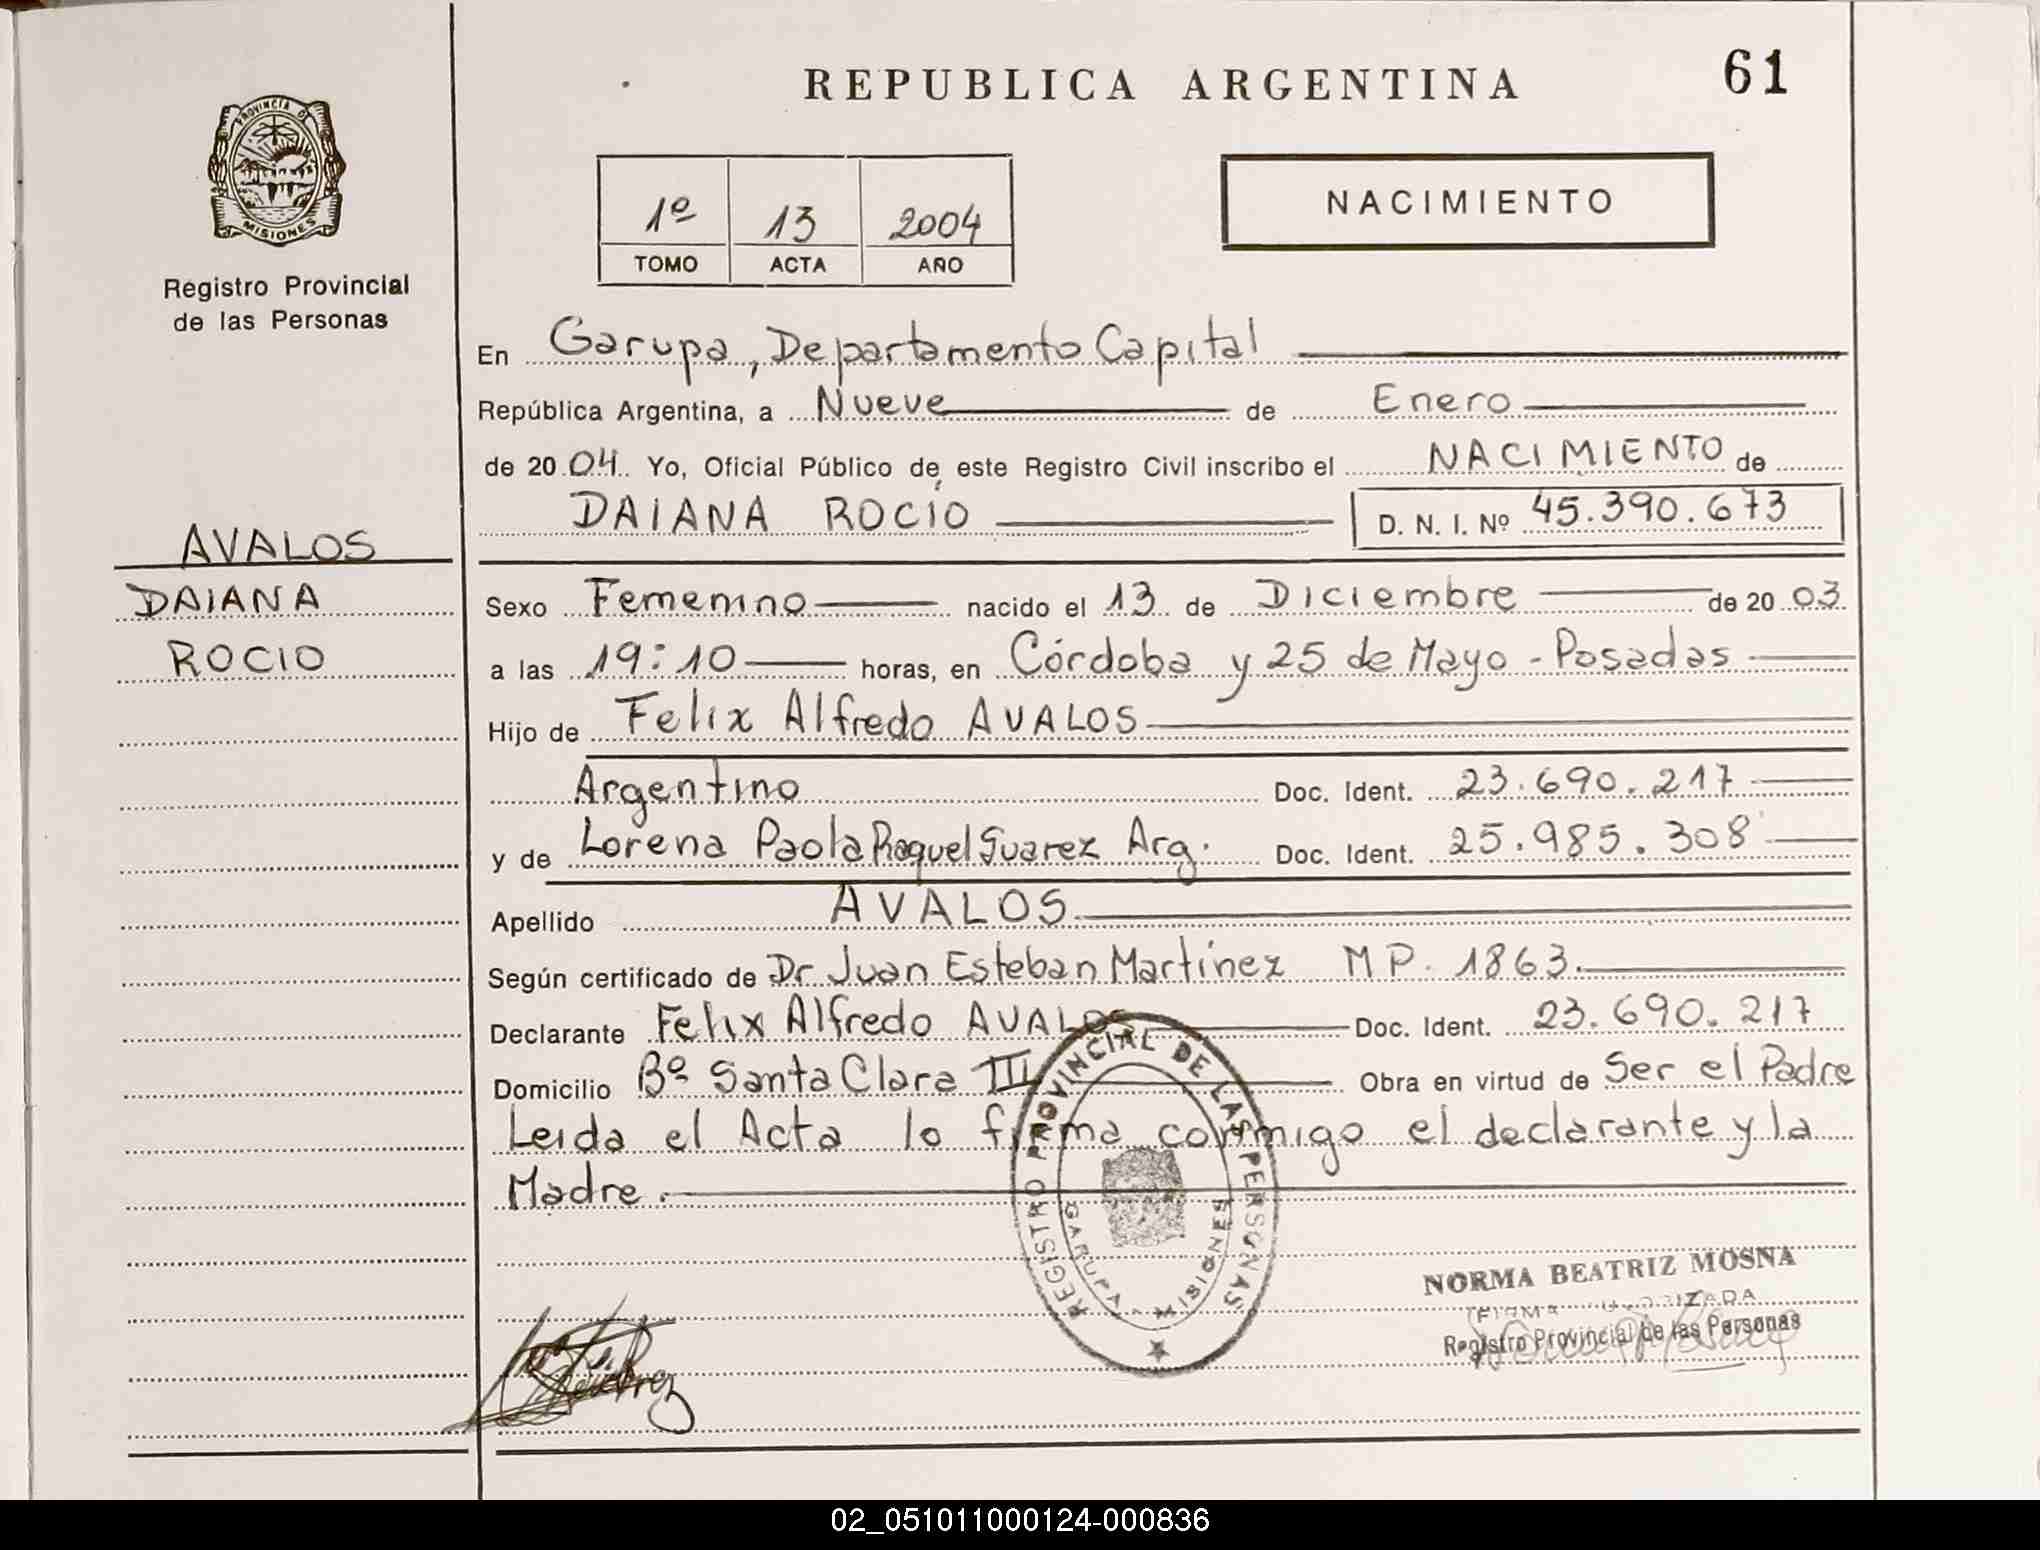 REPUBLICA ARGENTINA
61
PROVINCIA DE
MISIONES
Registro Provincial
de las Personas
1º 13 2004
TOMO ACTA AÑO
NACIMIENTO
En Garupa, Departamento Capital
República Argentina, a Nueve de Enero
de 20 04. Yo, Oficial Público de este Registro Civil inscribo el NACIMIENTO de
DAIANA ROCÍO D. N. I. Nº 45.390.673
AVALOS
DAIANA
ROCIO
Sexo Femenino nacido el 13 de Diciembre de 20 03
a las 19:10 horas, en Córdoba y 25 de Mayo - Posadas
Hijo de Felix Alfredo AVALOS
Argentino Doc. Ident. 23.690.217
y de Lorena Paola Raquel Suarez Arg. Doc. Ident. 25.985.308
Apellido AVALOS
Según certificado de Dr. Juan Esteban Martínez MP. 1863.
Declarante Felix Alfredo AVALOS Doc. Ident. 23.690.217
Domicilio Bº Santa Clara III Obra en virtud de Ser el Padre
Leida el Acta lo firma conmigo el declarante y la
Madre.
REGISTRO PROVINCIAL DE LAS PERSONAS
GARUPA - MISIONES
NORMA BEATRIZ MOSNA
FIRMA AUTORIZADA
Registro Provincial de las Personas
02_051011000124-000836